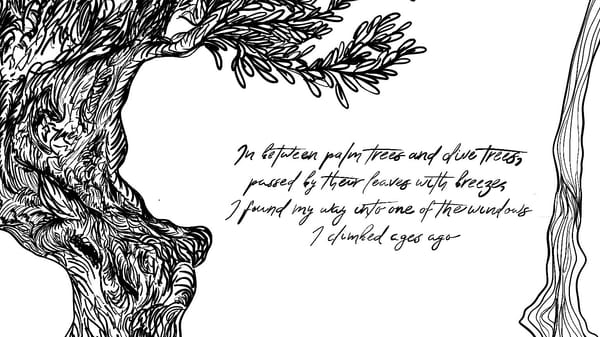 In between palm trees and olive trees,
passed by their leaves with breezes
I found my way into one of the windows
I climbed ages ago